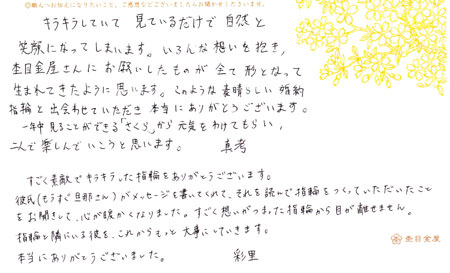 ◎職人へお伝えになりたいこと、ご感想などございましたらお聞かせくださいませ。
キラキラしていて 見ているだけで 自然と
笑顔になってしまいます。いろんな想いを抱き、
杢目金屋さんに お願いしたものが 全て 形となって
生まれてきたように 思います。このような 素晴らしい 婚約
指輪 と 出会わせていただき 本当にありがとうございます。
一年中 見ることができる「さくら」から 元気をわけてもらい、
二人で 楽しんでいこうと思います。 真考
すごく素敵で キラキラした指輪をありがとうございます。
彼氏(もうすぐ旦那さん)がメッセージを書いてくれて、それを読んで指輪をつくっていただいたこと
をお聞きして、心が暖かくなりました。すごく思いがつまった指輪から目が離せません。
指輪と隣にいる彼を、これからもっと大事にしていきます。
本当にありがとうございました。 彩里
杢目金屋